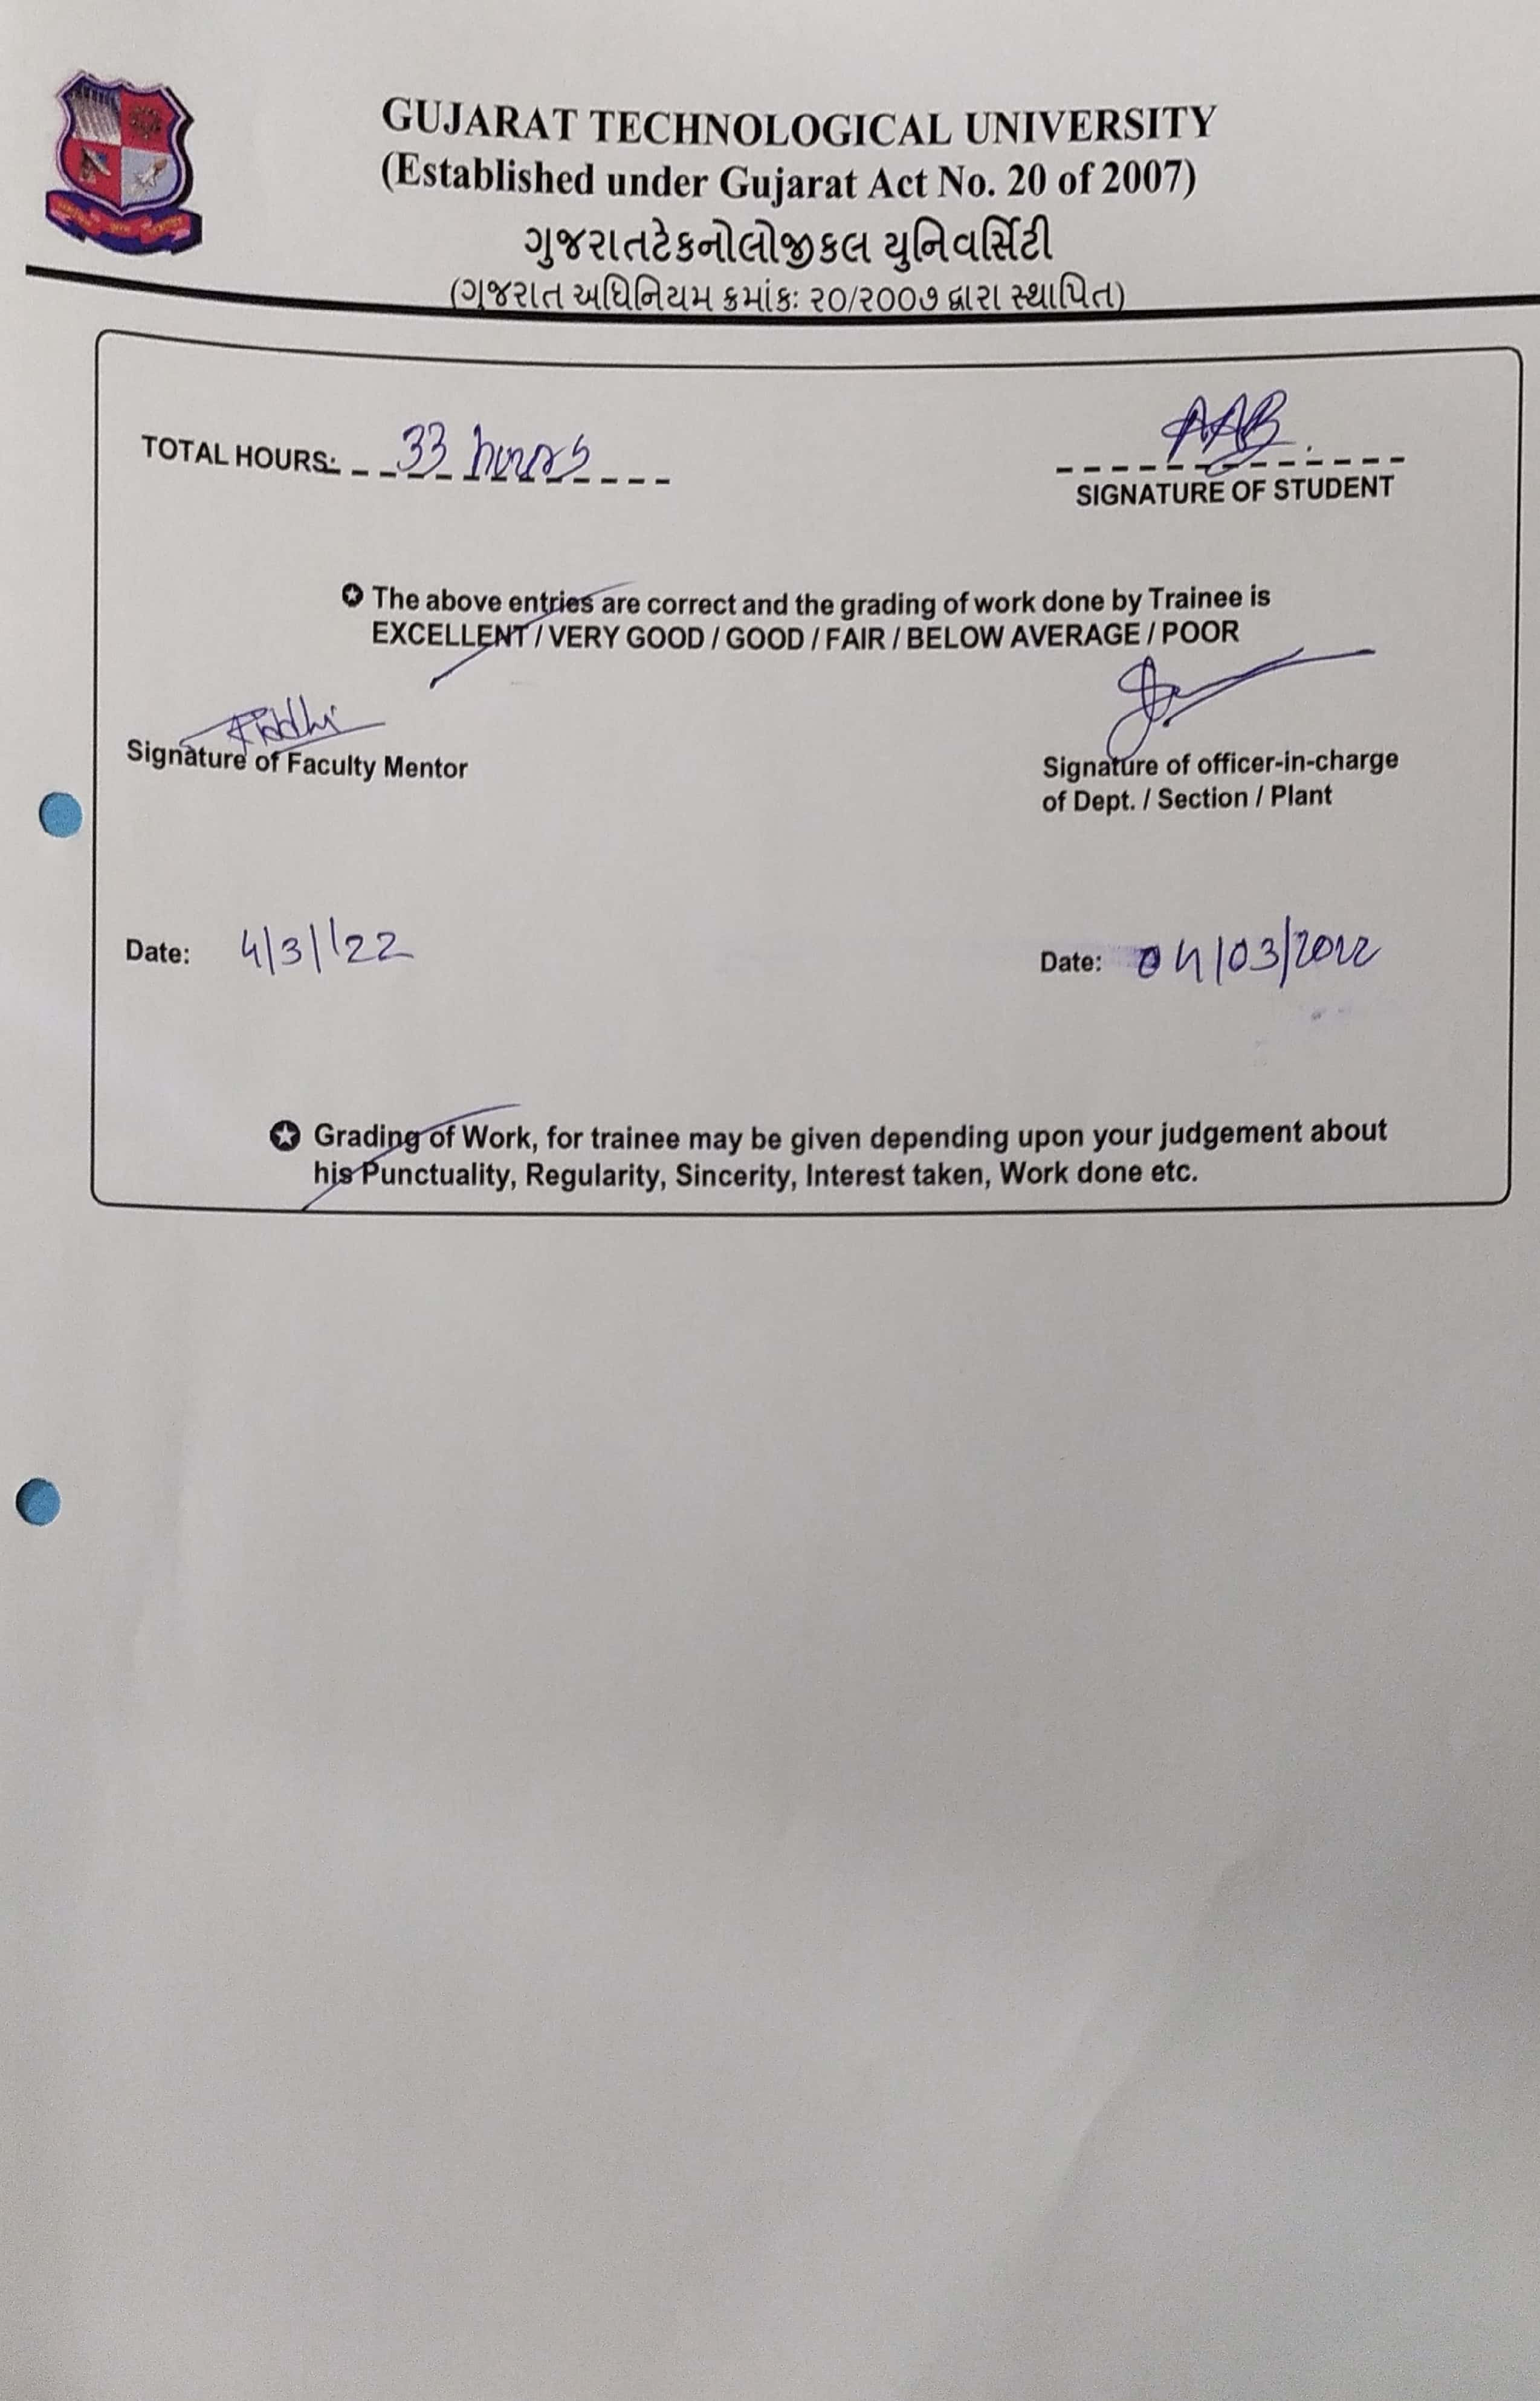 GUJARAT TECHNOLOGICAL UNIVERSITY
(Established under Gujarat Act No. 20 of 2007)
ગુજરાતટેકનોલોજીકલ યુનિવર્સિટી
(ગુજરાત અધિનિયમ ક્રમાંકઃ ૨૦/૨૦૦૭ દ્વારા સ્થાપિત)
TOTAL HOURS: 33 hours
AAB
SIGNATURE OF STUDENT
The above entries are correct and the grading of work done by Trainee is
EXCELLENT / VERY GOOD / GOOD / FAIR / BELOW AVERAGE / POOR
Riddhi
Signature of Faculty Mentor
Signature of officer-in-charge
of Dept. / Section / Plant
Date: 4/3/'22
Date: 04/03/2022
Grading of Work, for trainee may be given depending upon your judgement about
his Punctuality, Regularity, Sincerity, Interest taken, Work done etc.